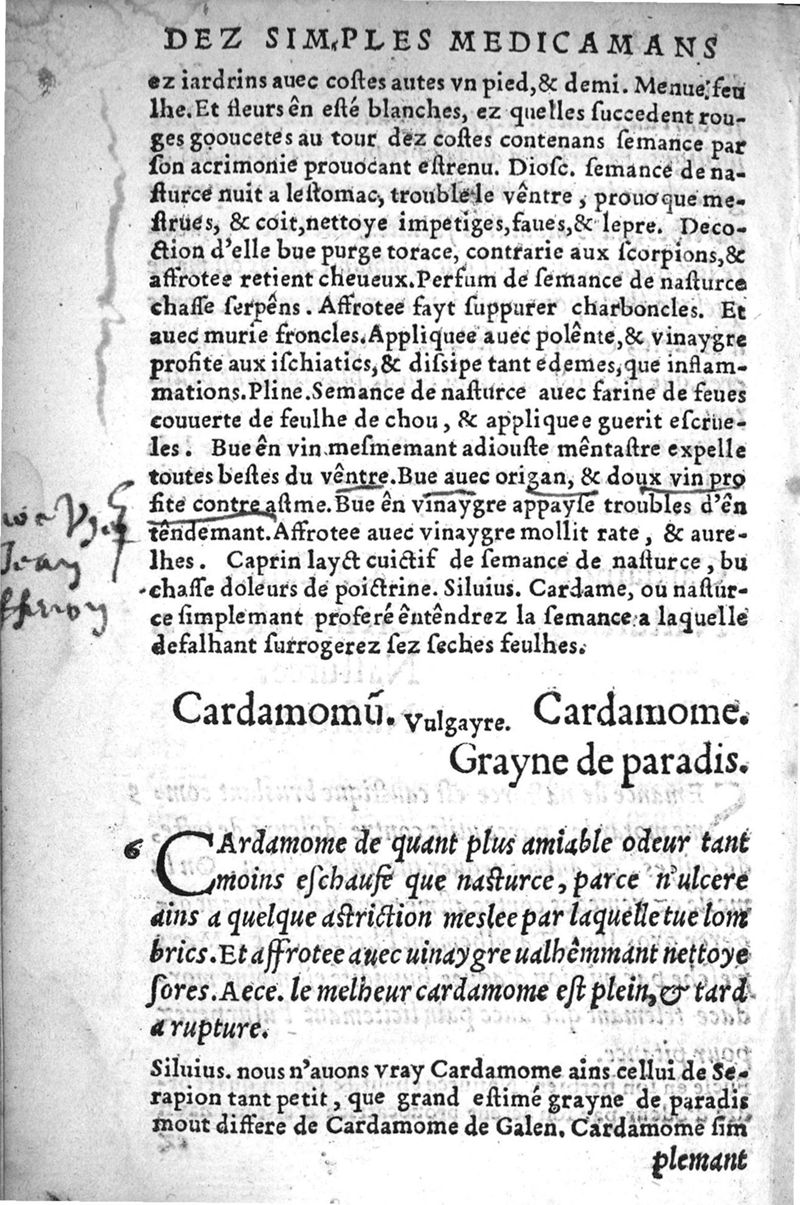 DEZ SIMPLES MEDICAMANS
ez iardrins auec coſtes autes vn pied,& demi. Menue feu
lhe.Et fleurs ên eſté blanches, ez quelles ſuccedent rou-
ges gooucetes au tour dez coſtes contenans ſemance par
ſon acrimonie prouocant eſtrenu. Dioſc. ſemance de na-
ſturce nuit a leſtomac, trouble le vêntre, prouoque me-
ſtrues, & coit,nettoye impetiges,faues,& lepre. Deco-
ction d'elle bue purge torace, contrarie aux ſcorpions,&
affrotee retient cheueux.Perfum de ſemance de naſturce
chaſſe ſerpêns. Affrotee fayt ſuppurer charboncles. Et
auec murie froncles.Appliquee auec polênte,& vinaygre
profite aux iſchiatics,& diſſipe tant edemes, que inflam-
mations.Pline.Semance de naſturce auec farine de feues
couuerte de feulhe de chou, & appliquee guerit eſcrue-
les. Bue ên vin meſmemant adiouſte mêntaſtre expelle
toutes beſtes du vêntre.Bue auec origan, & doux vin pro
fite contre aſtme.Bue ên vinaygre appayſe troubles d'ên
têndemant.Affrotee auec vinaygre mollit rate, & aure-
lhes. Caprin layct cuictif de ſemance de naſturce, bu
chaſſe doleurs de poictrine. Siluius. Cardame, ou naſtur-
ce ſimplemant proferé êntêndrez la ſemance a laquelle
defalhant ſurrogerez ſez ſeches feulhes.
Jean
Cardamomū. Vulgayre. Cardamome.
Grayne de paradis.
6 CArdamome de quant plus amiable odeur tant
moins eſchaufe que naſturce, parce n'ulcere
ains a quelque aſtriction meslee par laquelle tue lom
brics.Et affrotee auec uinaygre ualhêmmant nettoye
ſores.Aece. le melheur cardamome eſt plein,& tard
a rupture.
Siluius. nous n'auons vray Cardamome ains cellui de Se-
rapion tant petit, que grand eſtimé grayne de paradis
mout differe de Cardamome de Galen. Cardamome ſim
plemant